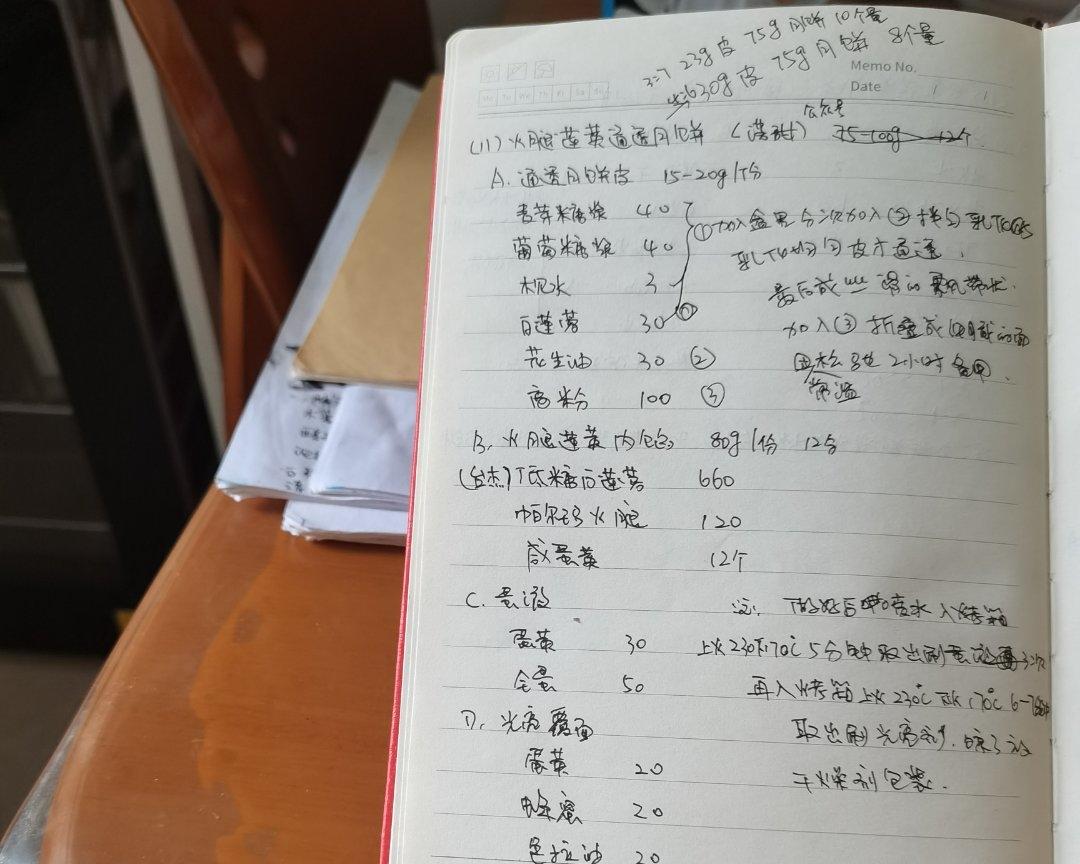 3:7 23g皮 75g月饼 10个量
30g皮 75g月饼 8个量
Memo No.
Date
Mo Tu We Th Fr Sa Su
公众号
(11)火腿莲黄通透月饼
75-100g 12个
A. 通透月饼皮 15-20g/份
麦芽糖浆 40
葡萄糖浆 40
枧水 3
白莲蓉 30 ①
花生油 30 ②
高粉 100 ③
①加入盆里分次加入②拌匀乳化
乳化均匀皮才通透.
最后成 滑的飘带状.
加入③折叠成细腻的面
团松弛2小时备用.
常温
B. 火腿莲黄内馅 80g/份 12份
低糖白莲蓉 660
帕尔玛火腿 120
咸蛋黄 12个
C. 蛋液
蛋黄 30
全蛋 50
注: 做好后喷水入烤箱
上火230下170℃ 5分钟取出刷蛋液 3次
再入烤箱上火230℃下火170℃ 6-7分钟
取出刷光亮剂.
干燥剂包装.
D. 光亮覆面
蛋黄 20
蜂蜜 20
色拉油 20